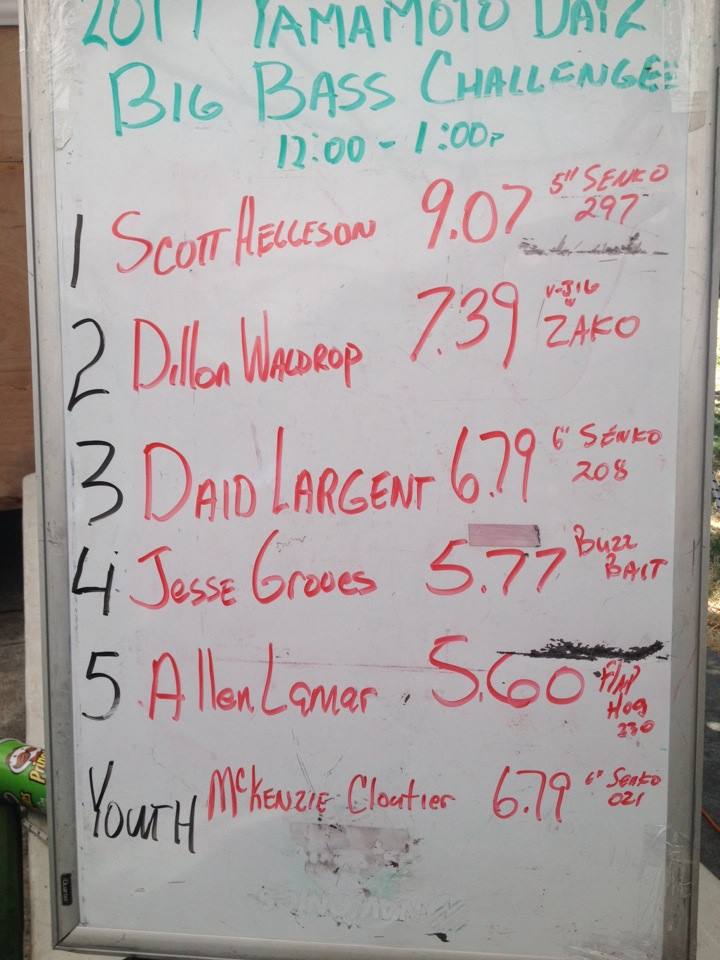 2017 YAMAMOTO DAY 2
BIG BASS CHALLENGE
12:00 - 1:00P
1 SCOTT HELLESON 9.07 5" SENKO 297
2 Dillon WALDROP 7.39 V-JIG W ZAKO
3 DAID LARGENT 6.79 6" SENKO 208
4 Jesse Groves 5.77 Buzz BAIT
5 Allen Lamar 5.60 Flap Hog 330
YOUTH McKENZIE Cloutier 6.79 6" Senko 021
Quartet
Pringles